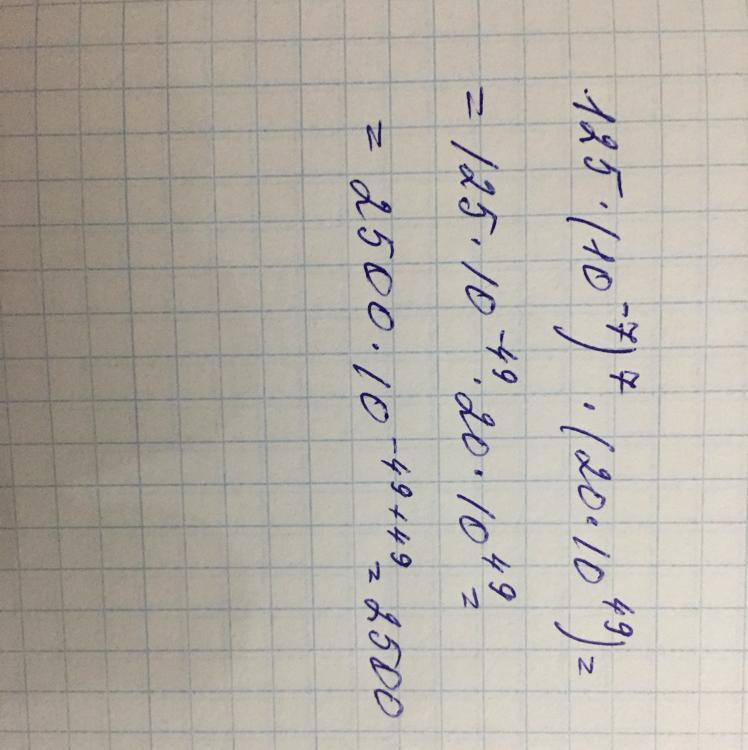 125·(10⁻⁷)⁷·(20·10⁴⁹)=
=125·10⁻⁴⁹·20·10⁴⁹=
=2500·10⁻⁴⁹⁺⁴⁹=2500